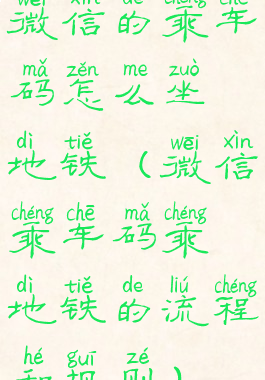 wēi xìn de chéng chē
微信的乘车
mǎ zěn me zuò
码怎么坐
dì tiě wēi xìn
地铁（微信
chéng chē mǎ chéng
乘车码乘
dì tiě de liú chéng
地铁的流程
hé guī zé
和规则）